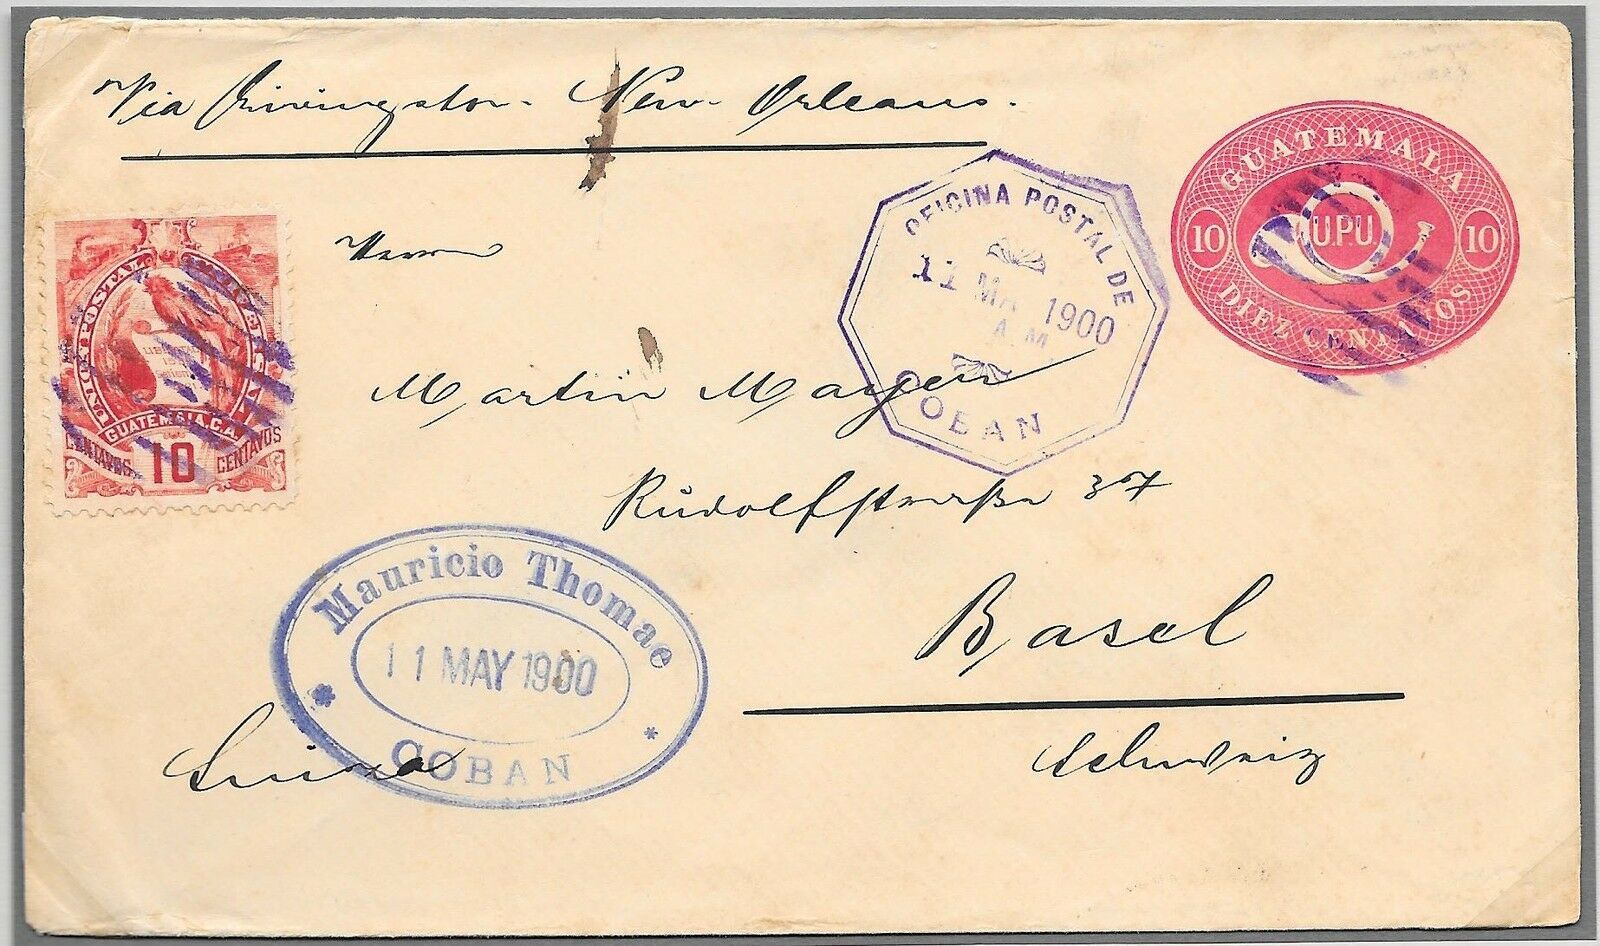 Via Livingston - New Orleans.
GUATEMALA
10 U.P.U. 10
DIEZ CENTAVOS
OFICINA POSTAL DE
11 MA 1900
A.M.
COBAN
UNION POSTAL UNIVERSAL
GUATEMALA.C.A.
CENTAVOS 10 CENTAVOS
Herrn
Martin Mayer
Rudolfstraße 37
Basel
Schweiz
Mauricio Thomae
11 MAY 1900
* COBAN *
Suiza